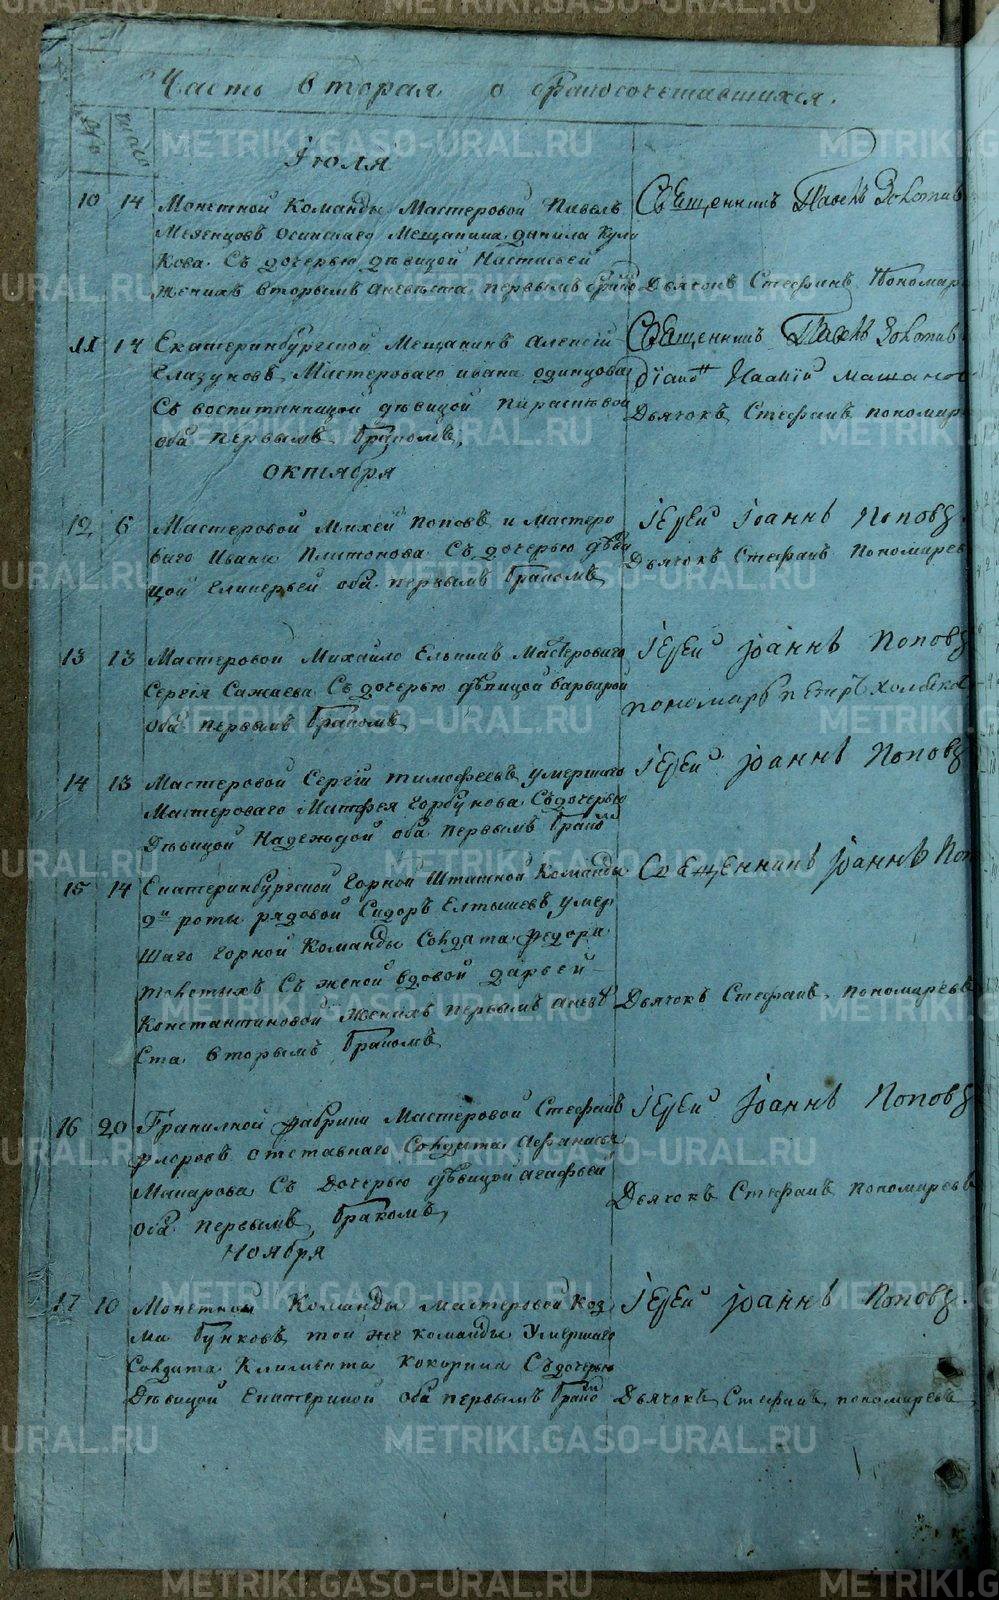 Часть вторая о бракосочетавшихся.
Июля
10 14 Монетной Команды Мастеровой Павелъ Священникъ Павелъ
Осинскаго Мещанина данила Кули
кова Съ дочерью дѣвицой Настасьей
женихъ вторымъ аневѣста первымъ Дьячокъ Стефанъ Пономар
11 14 Екатеринбургской Мещанинъ Алексѣй Священникъ Павелъ
Глазуновъ, Мастероваго ивана одинцова
Съ воспитанницой дѣвицой Парасковьей Дьячокъ Стефанъ пономар
оба первымъ бракомъ,
октября
12 6 Мастеровой Михей поповъ и мастеро Іерей Іоаннъ Поповъ
ваго Ивана Платонова Съ дочерью дѣви Дьячокъ Стефанъ Пономаревъ
цой Гликерьей оба первымъ бракомъ,
13 13 Мастеровой Михайло Мастероваго Іерей Іоаннъ Поповъ
Сергія Сажаева Съ дочерью дѣвицой варварой
оба первымъ бракомъ, пономарь петръ
14 13 Мастеровой Сергій тимофеевъ умершаго Іерей Іоаннъ Поповъ
Мастероваго Матфея горбунова Съ дочерью
Дѣвицой Надеждой оба первымъ брако
15 14 Екатеринбургской горной Штатной Команды Священникъ Іоаннъ Поп
роты рядовой Сидоръ Елтышевъ умер
шаго горной Команды Солдата федора
толстыхъ Съ женой вдовой дарьей
Константиновой женихъ первымъ аневѣ Дьячокъ Стефанъ, пономаревъ
ста вторымъ бракомъ,
16 20 Гранилной фабрики Мастеровой Стефанъ Іерей Іоаннъ Поповъ
флоровъ отставнаго Солдата Афанасья
Макарова Съ Дочерью дѣвицой агафьей Дьячокъ Стефанъ пономаревъ
оба первымъ, бракомъ,
Ноября
17 10 Монетной Команды мастеровой Коз Іерей Іоаннъ Поповъ.
ма бунковъ, той же команды Умершаго
Солдата Климента кокорина Съ дочерью
Дѣвицой Екатериной оба первымъ брако Дьячокъ Стефанъ, пономаревъ,
METRIKI.GASO-URAL.RU